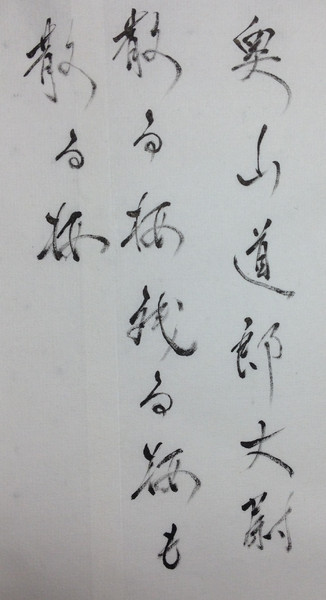 奥山道郎大尉
散る桜残る桜も
散る桜